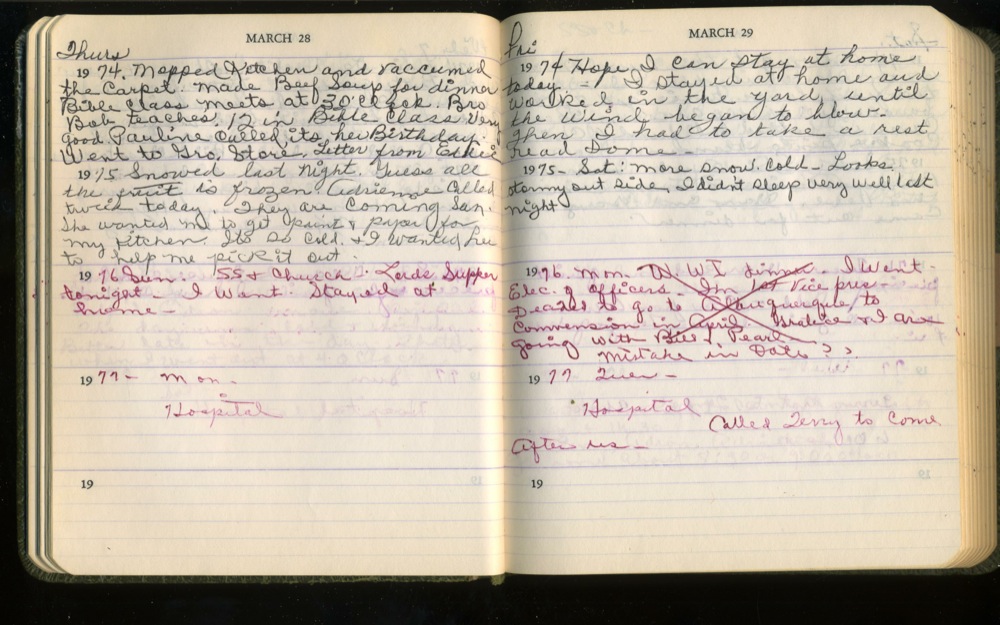 MARCH 28
Thurs
1974. Mopped Kitchen and vaccumed
the Carpet. Made Beef Soup for dinner
Bible Class meets at 3 O'Clock. Bro
Bob teaches. 12 in Bible Class Very
good Pauline Called its her Birthday.
Went to Gro. Store. Letter from
1975 Snowed last night. Guess all
the fruit is frozen. Adrienne Called
twice today. They are Coming Sun.
She wanted me to get paint & paper for
my Kitchen. Its so Cold. & I wanted her
to help me pick it out.
1976 Sun. SS & Church. Lords Supper
tonight. I Went. Stayed at
home -
1977 - Mon.
Hospital
19
MARCH 29
Fri
1974 Hope I can stay at home
today. - I stayed at home and
worked in the yard until
the wind began to blow.
Then I had to take a rest
read some -
1975 - Sat: more snow. Cold - Looks
stormy out side, I didn't sleep very well last
night
1976. Mon. W W I dinner. I Went -
Elec. of Officers. I'm 1st Vice pres -
Decided to go to Albuquerque to
Convension in April. & I are
going with Bill & Pearl -
Mistake in Date ? ?
1977 Tues -
Hospital
Called Terry to Come
After us -
19